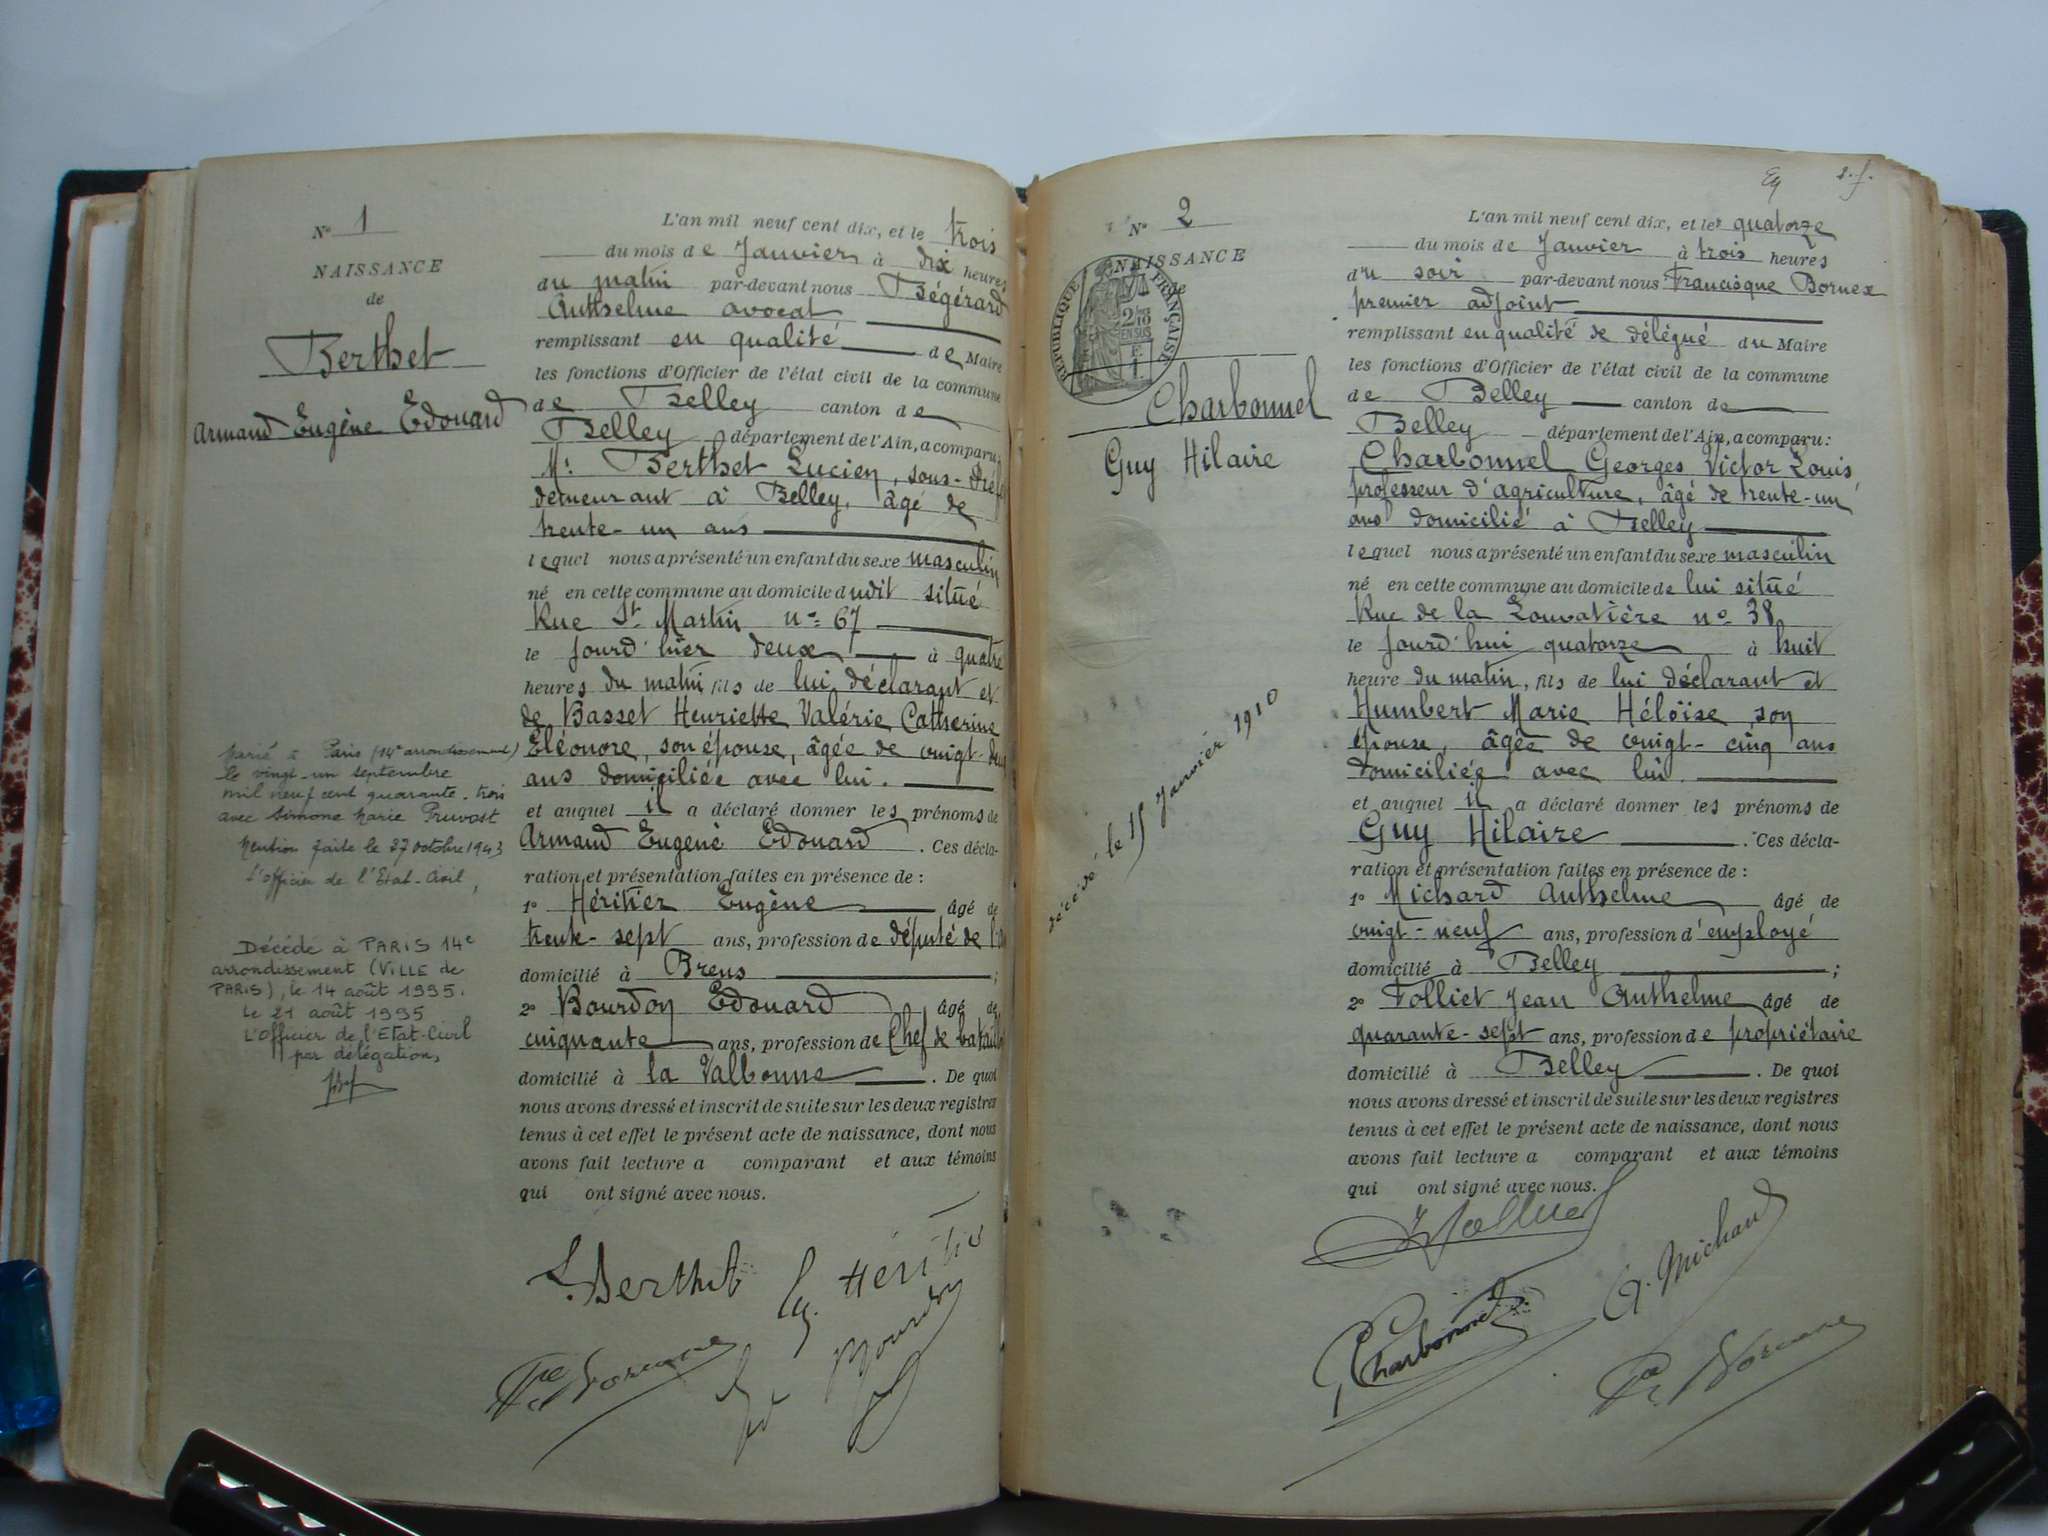 N° 1
NAISSANCE
de
Berthet
Armand Eugène Edouard
Marié à Paris (14e arrondissement)
le vingt-un septembre
mil neuf cent quarante-trois
avec Simone Marie Pruvost
Mention faite le 27 octobre 1943
L'officier de l'Etat-Civil,
Décédé à PARIS 14e
arrondissement (VILLE de
PARIS), le 14 août 1995.
Le 21 août 1995
L'Officier de l'Etat-Civil
par délégation,
L'an mil neuf cent dix, et le trois
du mois de Janvier à dix heures
du matin par-devant nous Bégérard
Anthelme avocat
remplissant en qualité de Maire
les fonctions d'Officier de l'état civil de la commune
de Belley canton de
Belley département de l'Ain, a comparu:
Mr Berthet Lucien, sous-Préf
demeurant à Belley, âgé de
trente-un ans
lequel nous a présenté un enfant du sexe masculin
né en cette commune au domicile dudit situé
Rue St Martin n° 67
le jourd'hier deux à quatre
heures du matin fils de lui déclarant et
de Basset Henriette Valérie Catherine
Eléonore, son épouse, âgée de vingt-deux
ans domiciliée avec lui.
et auquel il a déclaré donner les prénoms de
Armand Eugène Edouard. Ces décla-
ration et présentation faites en présence de :
1° Héritier Eugène âgé de
trente-sept ans, profession de député de l'Ain
domicilié à Brens ;
2° Bourdon Edouard âgé de
cinquante ans, profession de Chef de bataillon
domicilié à la Valbonne. De quoi
nous avons dressé et inscrit de suite sur les deux registres
tenus à cet effet le présent acte de naissance, dont nous
avons fait lecture a comparant et aux témoins
qui ont signé avec nous.
L. Berthet Eug. Héritier
Bourdon
N° 2
NAISSANCE
de
RÉPUBLIQUE FRANÇAISE
2/10
EN SUS
F.
1.
Charbonnel
Guy Hilaire
décédé le 15 Janvier 1910
2. f.
L'an mil neuf cent dix, et le quatorze
du mois de Janvier à trois heures
du soir par-devant nous Francisque Bornex
premier adjoint
remplissant en qualité de délégué du Maire
les fonctions d'Officier de l'état civil de la commune
de Belley canton de
Belley département de l'Ain, a comparu:
Charbonnel Georges Victor Louis,
professeur d'agriculture, âgé de trente-un
ans domicilié à Belley
lequel nous a présenté un enfant du sexe masculin
né en cette commune au domicile de lui situé
Rue de la Louvatière n° 38
le jourd'hui quatorze à huit
heure du matin, fils de lui déclarant et
Humbert Marie Héloïse, son
épouse, âgée de vingt-cinq ans
domiciliée avec lui.
et auquel il a déclaré donner les prénoms de
Guy Hilaire. Ces décla-
ration et présentation faites en présence de :
1° Michard Anthelme âgé de
vingt-neuf ans, profession d'employé
domicilié à Belley ;
2° Folliet Jean Anthelme âgé de
quarante-sept ans, profession de propriétaire
domicilié à Belley. De quoi
nous avons dressé et inscrit de suite sur les deux registres
tenus à cet effet le présent acte de naissance, dont nous
avons fait lecture a comparant et aux témoins
qui ont signé avec nous.
G Charbonnel A. Michard